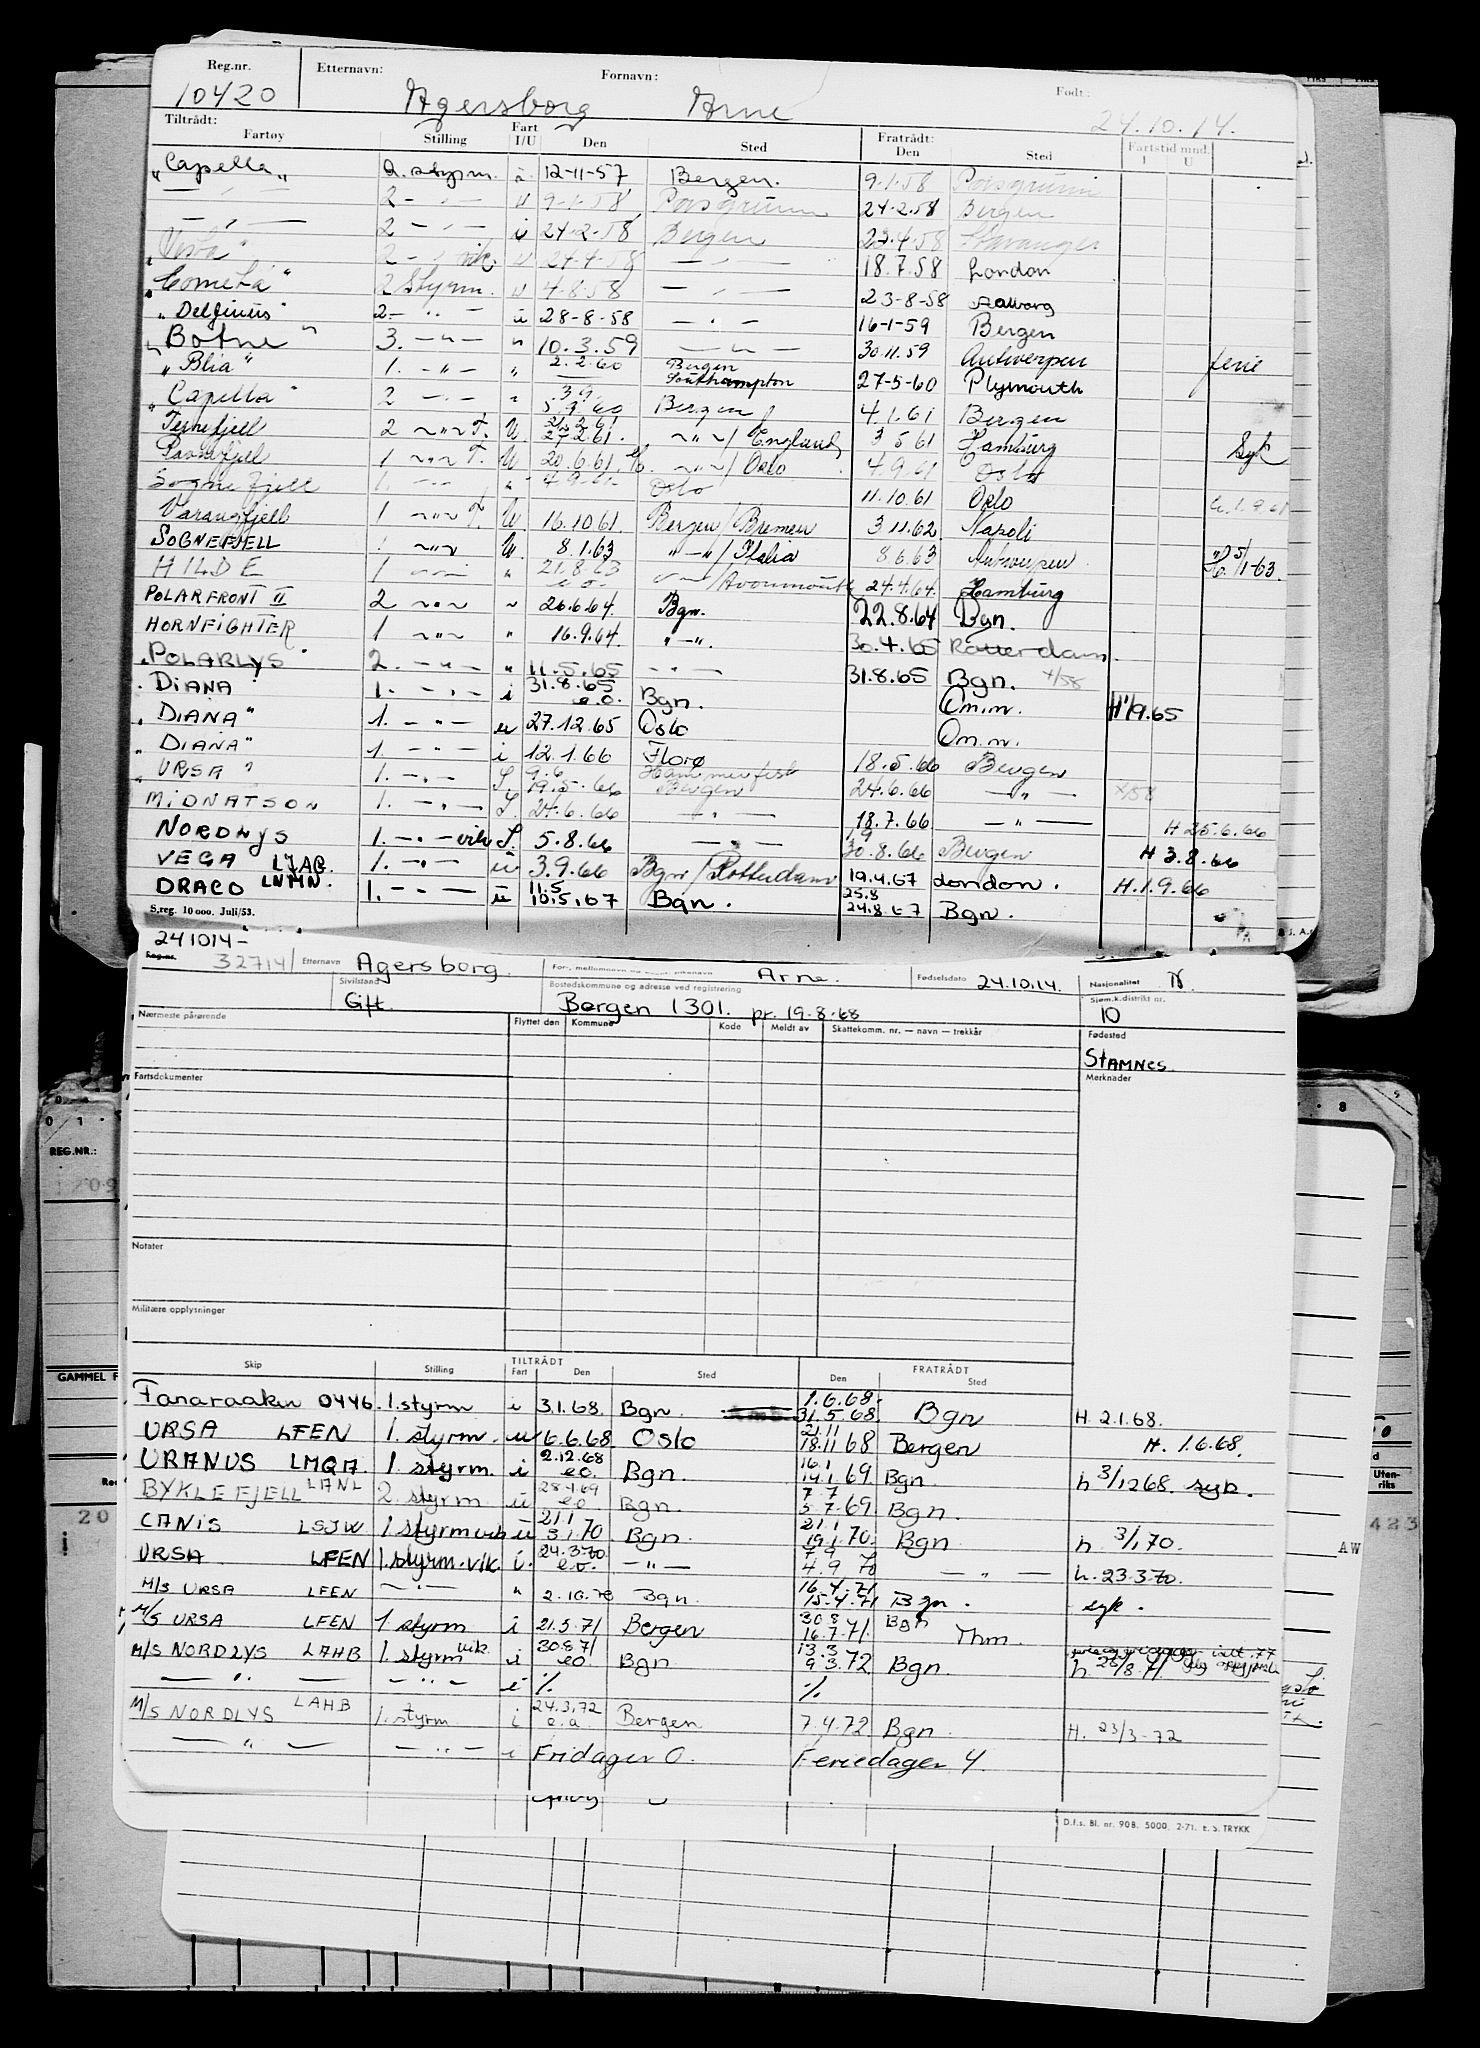 Reg.nr. Etternavn: Fornavn: Født:
10420 Agersborg Arne 24.10.14.
Tiltrådt: Fratrådt: Fartstid mnd.
Fartøy Stilling Fart I/U Den Sted Den Sted I U
"Capella" 2. styrm. 12-11-57 Bergen. 9.1.58 Porsgrunn
— " — 2 - " - u 9-1-58 Porsgrunn 24.2.58 Bergen
— " — 2 - " - i 24-2-58 Bergen 23.4.58 Stavanger
"Vesta" 2 - " - vik. u 24-4-58 — " — 18.7.58 London
"Cometa" 2 styrm. u 4-8-58 — " — 23-8-58 Aalborg
"Delfinus" 2- " - u 28-8-58 — " — 16-1-59 Bergen
"Botne" 3. - " - " 10.3.59 — " — 30.11.59 Antwerpen ferie
"Blia" 1. - " - " 2.2.60 Bergen Southampton 27-5-60 Plymouth
"Capella" 2 - " - " 3.9. 5.9.60 Bergen 4.1.61 Bergen
Ternefjell 2 - " - F. U 27.2.61. - " - / England 3 5 61 Hamburg Syk
Ravnefjell 1 - " - F. U 20.6.61. - " - / Oslo 4.9.61 Oslo
Sognefjell 1. - " - " 4.9.61 Oslo 11.10.61 Oslo 1.9.61
Varangfjell 1 - " - F. U 16.10.61. Bergen / Bremen 3.11.62 Napoli
SOGNEFJELL 1 - " - U 8.1.63 " - " / Italia 8 6 63 Antwerpen 5/1-63.
HILDE 1 - " - " 21.8.63 e.o. - " - / Avonmouth 24.4.64. Hamburg
POLARFRONT II 2 - " - " 26.6.64. Bgn. 22.8.64 Bgn.
HORNFIGHTER 1 - " - " 16.9.64. " - " 30.4.65 Rotterdam
"POLARLYS" 2. - " - " 11.5.65 - " - 31.8.65 Bgn. +/58
"DIANA 1. - " - i 31.8.65 e.o. Bgn. Om.m. H 1/9.65
"DIANA" 1. - " - u 27.12.65 Oslo Om.m.
"DIANA" 1. - " - i 12.1.66 Florø 18.5.66 Bergen
"URSA" 1. - " - S. 9.6 19.5.66 Hammerfest Bergen 24.6.66 — " — +/58
MIDNATSOL 1. - " - S. 24.6.66 — " — 18.7.66 — " — H 25.6.66
NORDLYS 1. - " - vik S. 5.8.66 — " — 30.8.66 Bergen H 3.8.66
VEGA LJAG. 1. - " - u 3.9.66 Bgn / Rotterdam 19.4.67 London. H.1.9.66
DRACO LNMN. 1. - " - u 11.5 10.5.67 Bgn. 25.8 24.8.67 Bgn.
S.reg. 10 000. Juli/53.
241014-
Reg.nr. 32714 Etternavn Agersborg. Arne. Fødselsdato 24.10.14. Nasjonalitet N.
Sivilstand Gift. Bostedskommune og adresse ved registrering Bergen 1301. pr. 19-8-68 Sjøm.k.distrikt nr. 10
Nærmeste pårørende Flyttet den Kommune Kode Meldt av Skattekomm. nr. — navn — trekkår Fødested
STAMNES
Fartsdokumenter Merknader
Notater
Militære opplysninger
TILTRÅDT FRATRÅDT
Skip Stilling Fart Den Sted Den Sted
Fanaraaken 0446. 1.styrm i 3.1.68. Bgn. 1.6.68. 31.5.68 Bgn H. 2.1.68.
URSA LFEN 1. styrm. u 6.6.68 Oslo 21.11 18.11 68 Bergen H. 1.6.68.
URANUS LMQA. 1. styrm. i 2.12.68 e.o. Bgn. 16.1 14.1 69 Bgn. h 3/12 68. syk.
BYKLEFJELL LANL 2. styrm. u 28-1-69 e.o. Bgn. 7 7 5.7.69 Bgn.
CANIS LSJW 1 styrm vik u 21 1 3.1.70 Bgn. 21.1 19.1 70. Bgn h. 3/1 70.
URSA LFEN 1.styrm.vik. i. 24.3.70 e.o. — " — 7 9 4.9 70 — " — h. 23.3.70.
M/S URSA LFEN — " — " 2.10.70 Bgn. 16.4.71 15.4.71 Bgn. syk.
M/S URSA LFEN 1. styrm i 21.5.71 Bergen 30 8 16.7.71. Bgn Thm.
M/S NORDLYS LAHB 1. styrm vik i 30.8.71 e.o. Bgn 13.3 9.3.72 Bgn h 28/8 71
— " — - " - i % %
M/S NORDLYS LAHB 1. styrm i 24.3.72 e.o. Bergen 7.4.72 Bgn H. 23/3-72
— " — — " — i Fridager 0. Feriedager 4.
D.f.s. Bl. nr. 90B. 5000. 2-71. E.S. TRYKK
REG.NR.:
GAMMEL F
20
Uten-
riks
423
AW